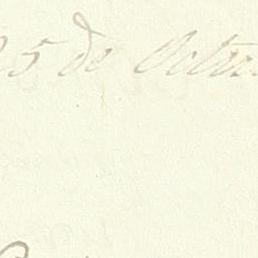 25 de Octu